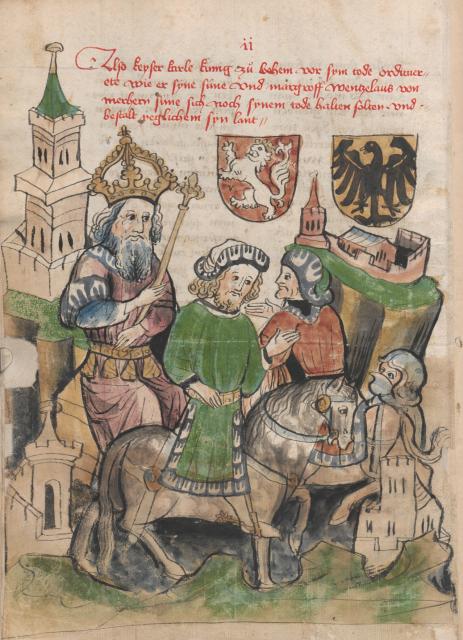 ii
Also keyser karle kunig zü behem vor sym tode ordinier=
ete wie er syne süne vnd marggroff wentzelaus von
merhern süne sich noch synem tode halten solten vnd
bestalt yeglichem syn lant //